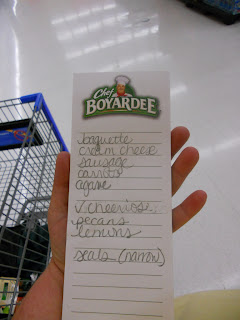 Chef
BOYARDEE
baguette
cream cheese
sausage
carrots
agave
pecans
lemons
seals (narrow)